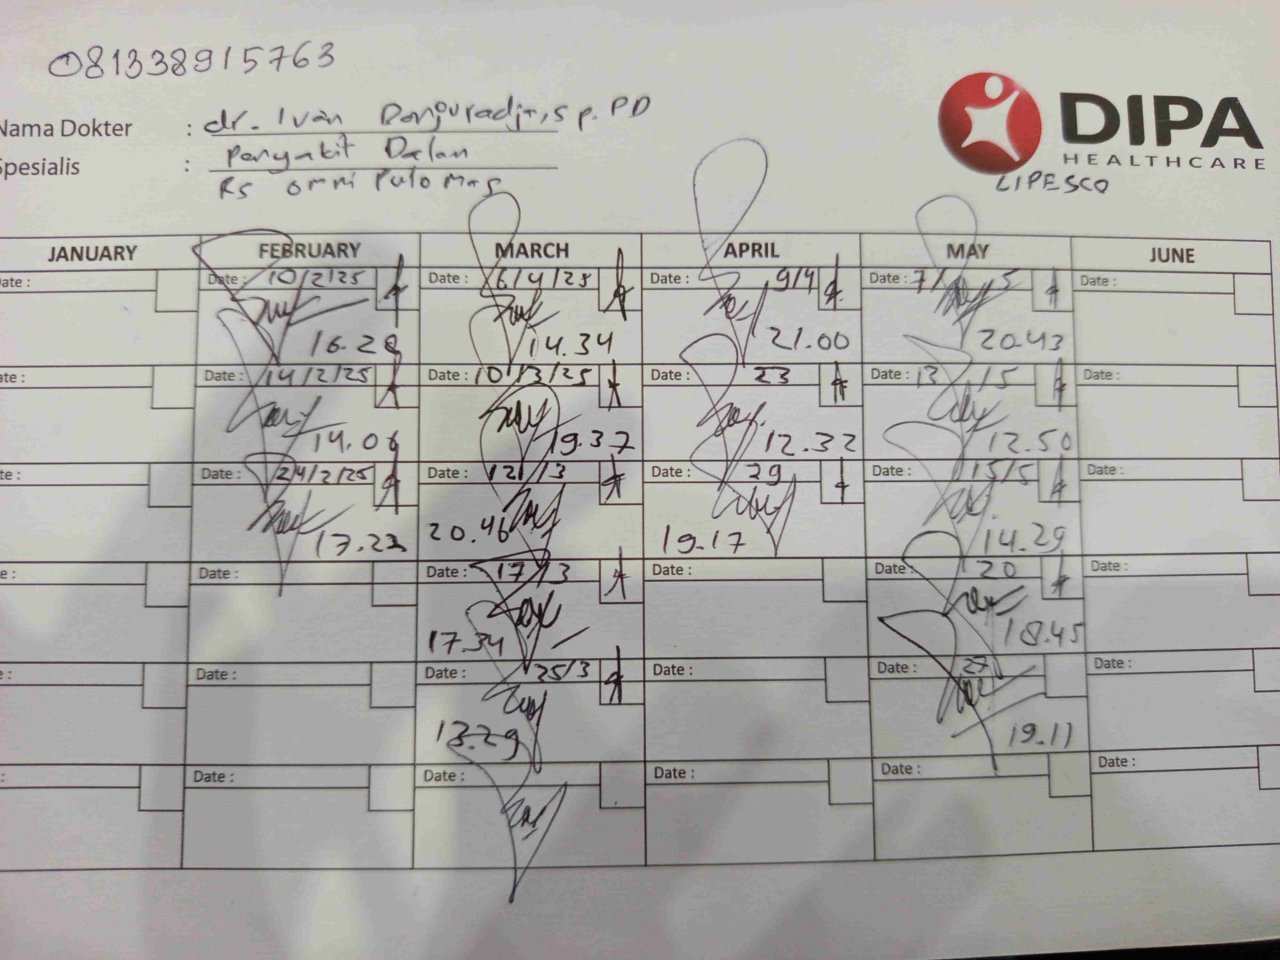 081338915763
Nama Dokter : dr. Ivan Danjuradja, sp. PD
Spesialis : Penyakit Dalam
Rs omni Pulo Mas
DIPA
HEALTHCARE
LIPESCO
JANUARY FEBRUARY MARCH APRIL MAY JUNE
Date : Date : 10/2/25 Date : 6/4/25 Date : 9/4 Date : 7/ 5 Date :
16.28 14.34 21.00 20.43
Date : Date : 14/2/25 Date : 10/3/25 Date : 23 Date : 13/5 Date :
14.06 19.37 12.32 12.50
Date : Date : 24/2/25 Date : 12/3 Date : 29 Date : 15/5 Date :
17.23 20.46 19.17 14.29
Date : Date : Date : 17/3 Date : Date : 20 Date :
17.34 18.45
Date : Date : Date : 25/3 Date : Date : 27 Date :
13.29 19.11
Date : Date : Date : Date : Date : Date :